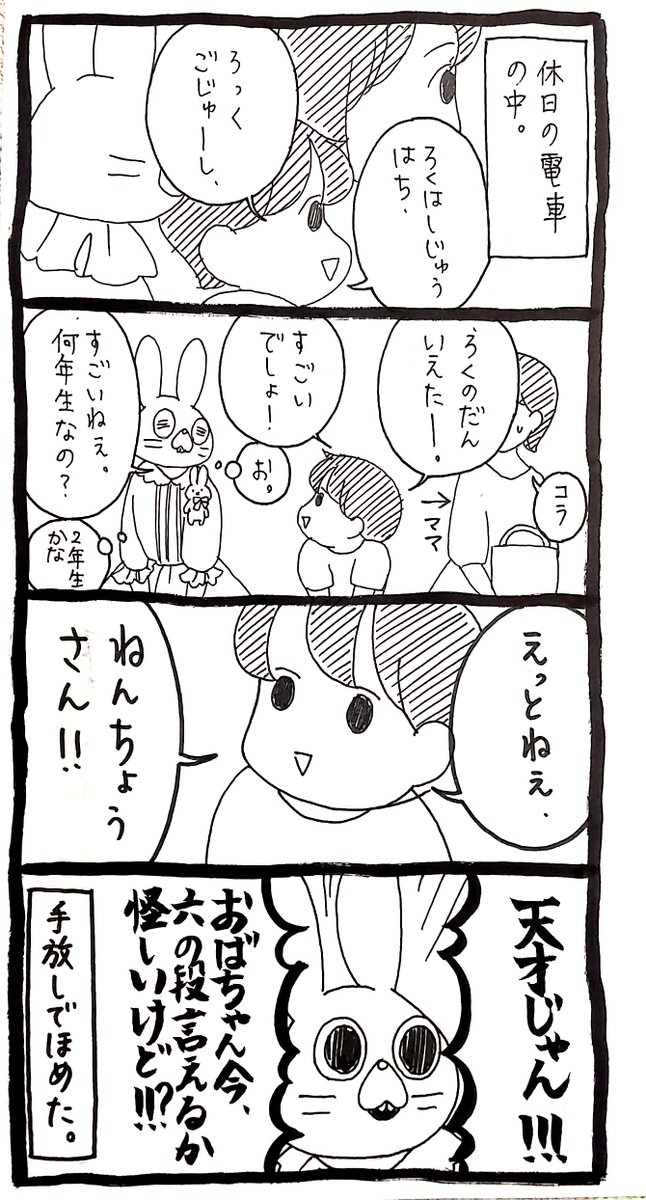 休日の電車
の中。
ろくはしじゅう
はち、
ろっく
ごじゅーし、
コラ
→ママ
ろくのだん
いえたー。
すごい
でしょ!
お。
すごいねぇ。
何年生なの?
2年生
かな
えっとねぇ、
ねんちょう
さん!!
天才じゃん!!!
おばちゃん今、
六の段言えるか
怪しいけど!?!!
手放しでほめた。